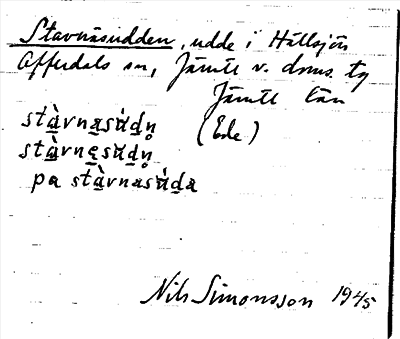 Stavnäsudden, udde i Hällsjön
Offerdals sn, Jämtl v. doms. tg
Jämtl län
stàvnasúdn̥ (Ede)
stàvnesúdn̥
pa stàvnasúda
Nils Simonsson 1945